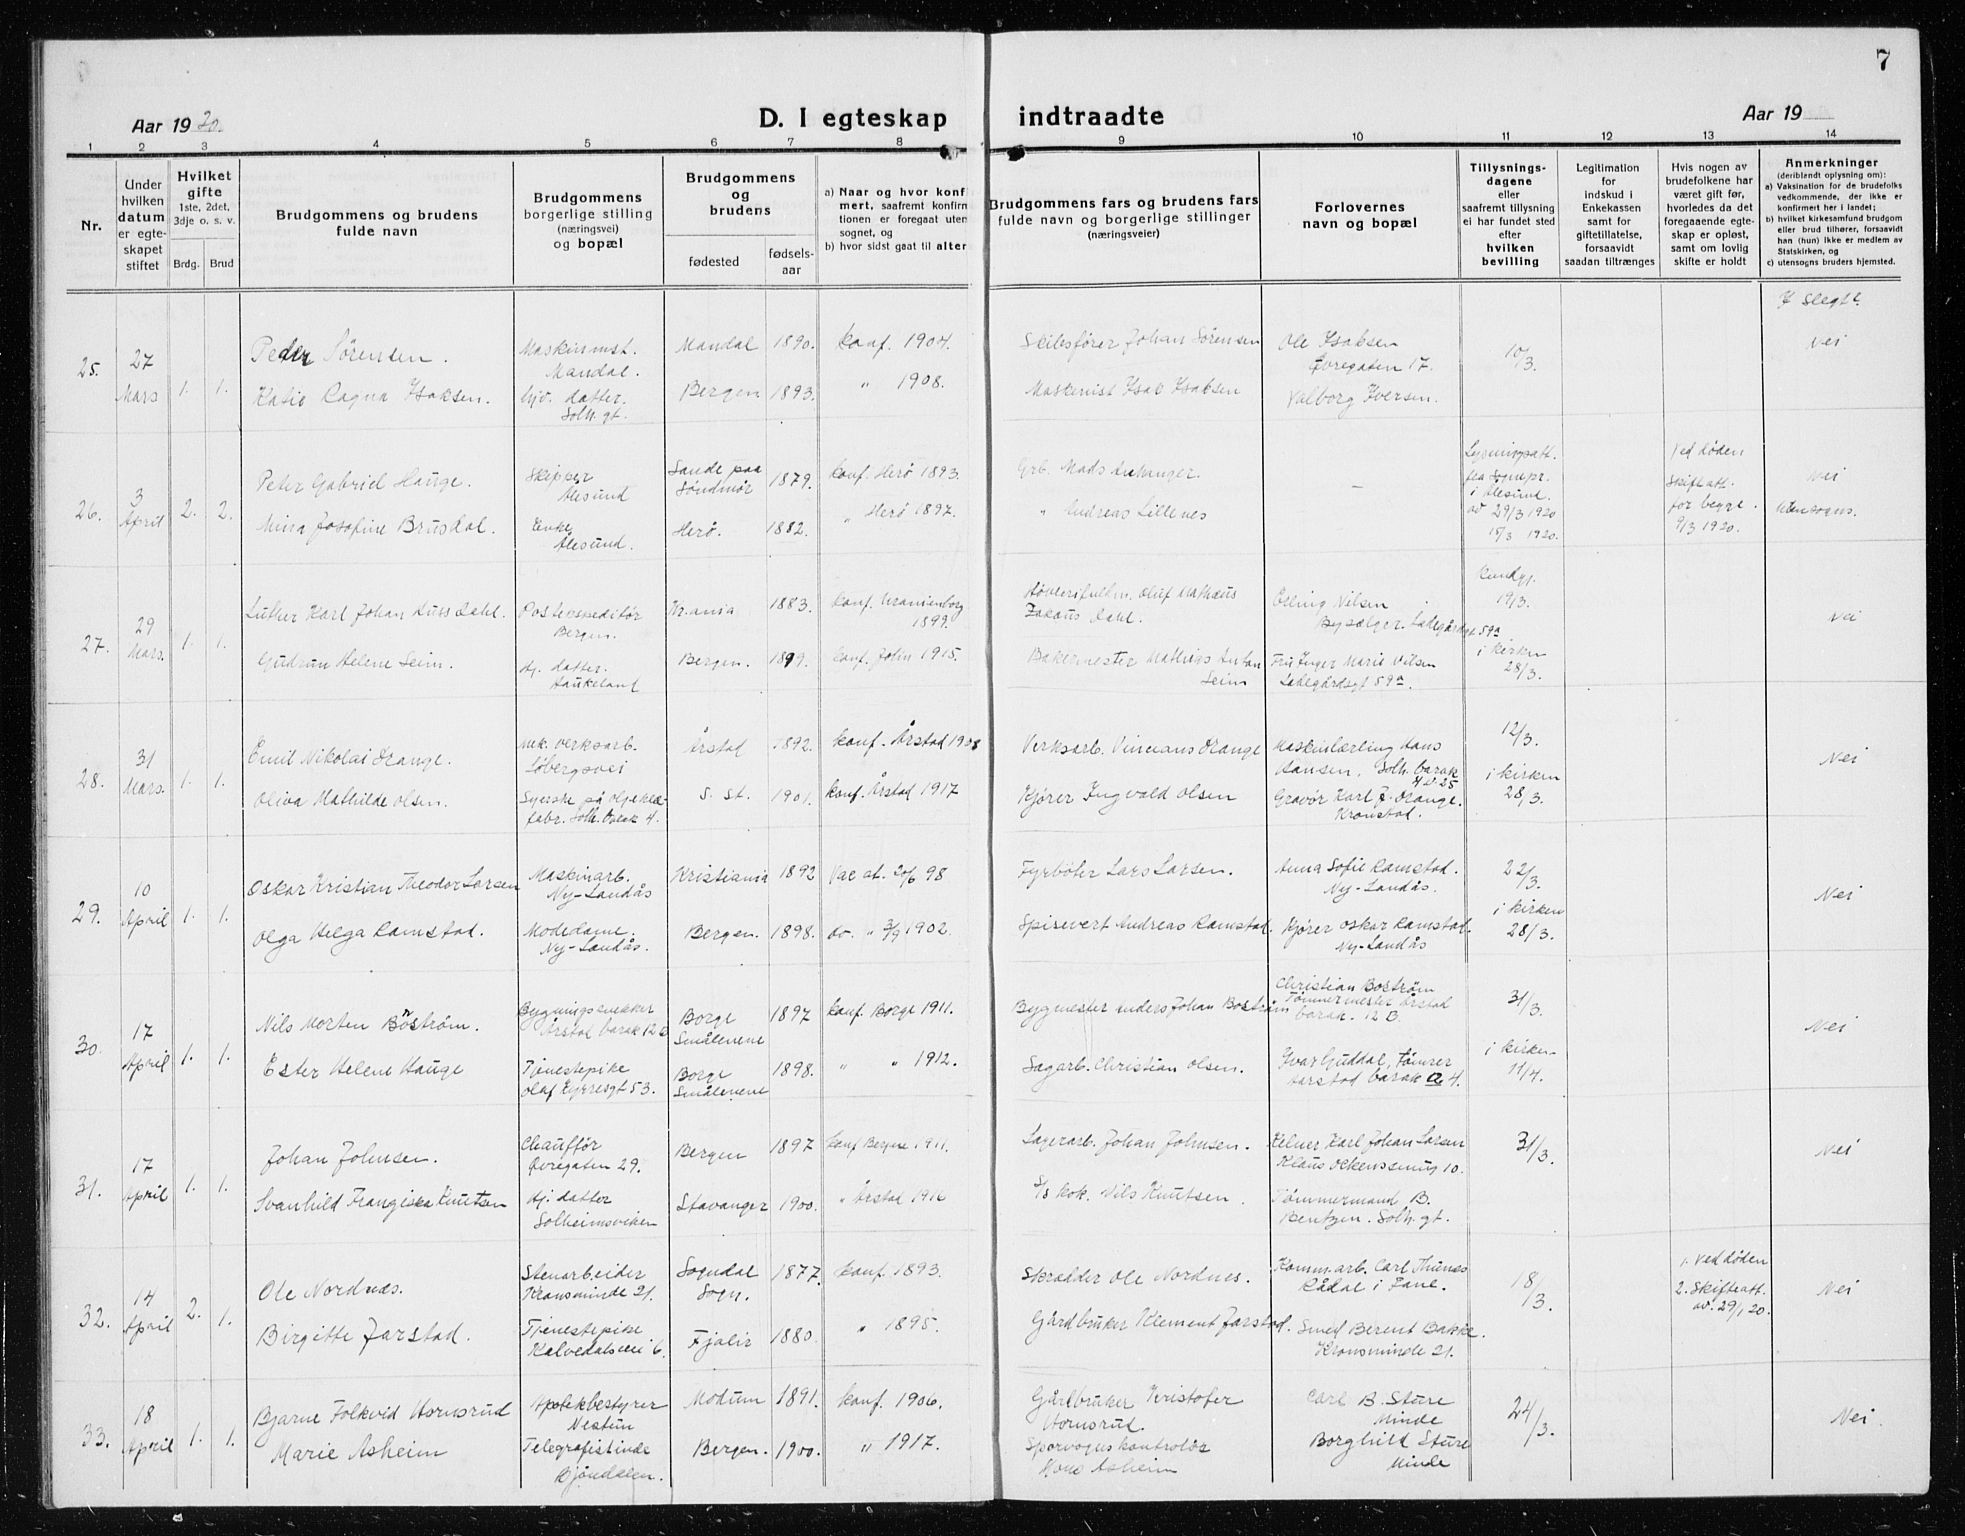 7
Aar 1920.
D. I egteskap indtraadte
Aar 19
1 2 3 4 5 6 7 8 9 10 11 12 13 14
Nr.
Under hvilken datum er egteskapet stiftet
Hvilket gifte 1ste, 2det, 3dje o. s. v.
Brdg. Brud
Brudgommens og brudens fulde navn
Brudgommens og brudens borgerlige stilling (næringsvei) og bopæl
Brudgommens og brudens
fødested
fødselsaar
a) Naar og hvor konf
mert, saafremt konfirm
tionen er foregaat uten
sognet, og
b) hvor sidst gaat til alter
Brudgommens fars og brudens fars
fulde navn og borgerlige stillinger
(næringsveier)
Forlovernes
navn og bopæl
Tillysnings-
dagene
eller
saafremt tillysning
ei har fundet sted
efter
hvilken
bevilling
Legitimation
for
indskud i
Enkekassen
samt for
giftetillatelse,
forsaavidt
saadan tiltrænges
Hvis nogen av
brudefolkene har
været gift før,
hvorledes da det
foregaaende egte-
skap er opløst,
samt om lovlig
skifte er holdt
Anmerkninger
(deriblandt oplysning om):
a) Vaksination for de brudefolks
vedkommende, der ikke er
konfirmert her i landet;
b) hvilket kirkesamfund brudgom
eller brud tilhører, forsaavidt
han (hun) ikke er medlem av
Statskirken, og
c) utensogns bruders hjemsted.
25. 27 Mars 1. 1.
Peder Sørensen.
Maskinmst.
Mandal.
Mandal 1890. konf. 1904.
Skibsfører Johan Sørensen
Ole Isaksen
Øvregaten 17.
10/3.
Nei
Katie Ragna Isaksen.
hjv. datter.
Solh. gt.
Bergen 1893. " 1908.
Maskinist Isak Isaksen
Valborg Iversen.
26. 3 April 2. 2.
Peter Gabriel Hauge.
Skipper
Ålesund
Sande paa
Søndmør
1879. konf. Herø 1893.
Grb. Mads
–
Lysningsatt.
fra Sognepr.
i Ålesund.
av 29/3 1920
15/3 1920.
Ved døden
Skifteatt.
for begge.
9/3 1920.
Nei
Utensogns.
Mina Josefine Brusdal.
Enke
Ålesund.
Herø. 1882. " Herø 1897.
" Andreas Lillenes
27. 29 Mars. 1. 1.
Luther Karl Johan Dahl.
Postekspeditør
Bergen.
Kr.ania 1883. konf. Uranienborg
1899.
Oluf Mathæus
Dahl.
Erling Nilsen
Bysælger. Ladegårdsgt 59a
Kundgj.
19/3.
i kirken
28/3.
Nei
Gudrun Helene Seim.
Hj. datter.
Haukeland
Bergen. 1899. konf. John 1915.
Bakermester Mathias Anton
Seim
Fru Inger Marie Nilsen
Ladegårdsgt 59a.
28. 31 Mars. 1. 1.
Emil Nikolai Drange.
Mek. verksarb.
Løbergsvei
Årstad 1892. konf. Årstad 1908
Verksarb. Drange
Maskinlærling Hans
Hansen, Solh. barak
25
12/3.
i kirken
28/3.
Nei
Oliva Mathilde Olsen.
Syerske på oljeklæ-
fabr. Solh. barak 4.
S. St. 1901. konf. Årstad 1917
Kjører Ingvald Olsen
Gravør Karl J. Drange.
Kronstad.
29. 10 April 1. 1.
Oskar Kristian Theodor Larsen
Maskinarb.
Ny-Landås
Kristiania 1892 Vac. at. 20/6 98
Fyrbøter Lars Larsen.
Anna Sofie Ramstad.
Ny-Landås.
22/3.
i kirken
28/3.
Nei
Olga Helga Ramstad.
Modedame.
Ny-Landås.
Bergen. 1898. do. " 3/9 1902.
Spisevert Andreas Ramstad.
Kjører Oskar Ramstad.
Ny-Landås
30. 17 April 1. 1.
Nils Morten Boström.
Bygningssnekker
Årstad barak 12 B
Borge
Smålenene
1897 konf. Borge 1911.
Bygmester Anders Johan Boström
Christian Boström
Tømmermester Årstad
barak. 12 B.
31/3.
i kirken
11/4.
Nei
Ester Helene Hauge
Tjenestepike
Olaf Kyrresgt 53.
Borge
Smålenene
1898. " " 1912.
Sagarb. Christian Olsen.
Ivar Guddal, Tømrer
Aarstad barak a 4.
31. 17 April 1. 1.
Johan Johnsen.
Chauffør
Øvregaten 29.
Bergen 1897 konf Bergen 1911.
Lagerarb. Johan Johnsen.
Kelner Karl Johan Larsen
Klaus Olkenssmug 10.
31/3.
Nei
Svanhild Franziska Knutsen
Hj. datter
Solheimsviken
Stavanger 1900. " Årstad 1916
S/s kok. Nils Knutsen.
Tømmermand B.
Bentzen. Solh. gt.
32. 14 April 2. 1.
Ole Nordnæs.
Stenarbeider
Kronsminde 21.
Sogndal
Sogn.
1877. konf. 1893.
Skrædder Ole Nordnes.
Kommarb. Carl Thunæs
Rådal i Fane.
18/3.
1. Ved døden
2. Skifteatt.
av. 29/1 20.
Nei
Birgitte Jarstad.
Tjenestepike
Kalvedalsvei 6.
Fjaler 1880. " 1895.
Gårdbruker Klement Jarstad.
Smed Berent Bakke.
Kronsminde 21.
33. 18 April 1. 1.
Bjarne Folkvid Hornsrud
Apotekbestyrer
Nestun
Modum 1891. konf. 1906.
Gårdbruker Kristofer
Hornsrud.
Carl B. Sture
Minde
24/3.
Nei.
Marie Asheim
Telegrafistinde
Bjøndalen.
Bergen. 1900. " 1917.
Sporvognskontrolør
Mons Asheim
Borghild Sture
Minde